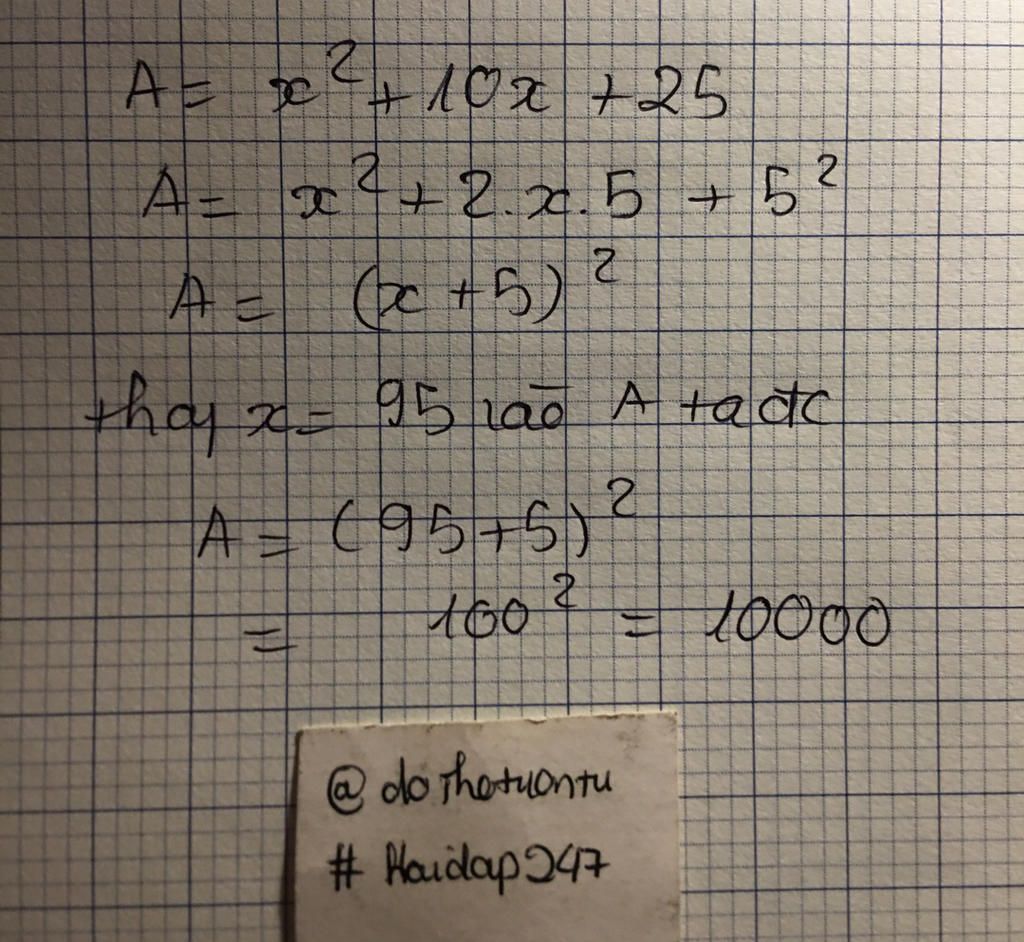 A = x² + 10x + 25
A = x² + 2.x.5 + 5²
A = (x + 5)²
thay x = 95 vào A ta đc
A = (95 + 5)²
= 100² = 10000
@ dothetuontu
# Hoidap247